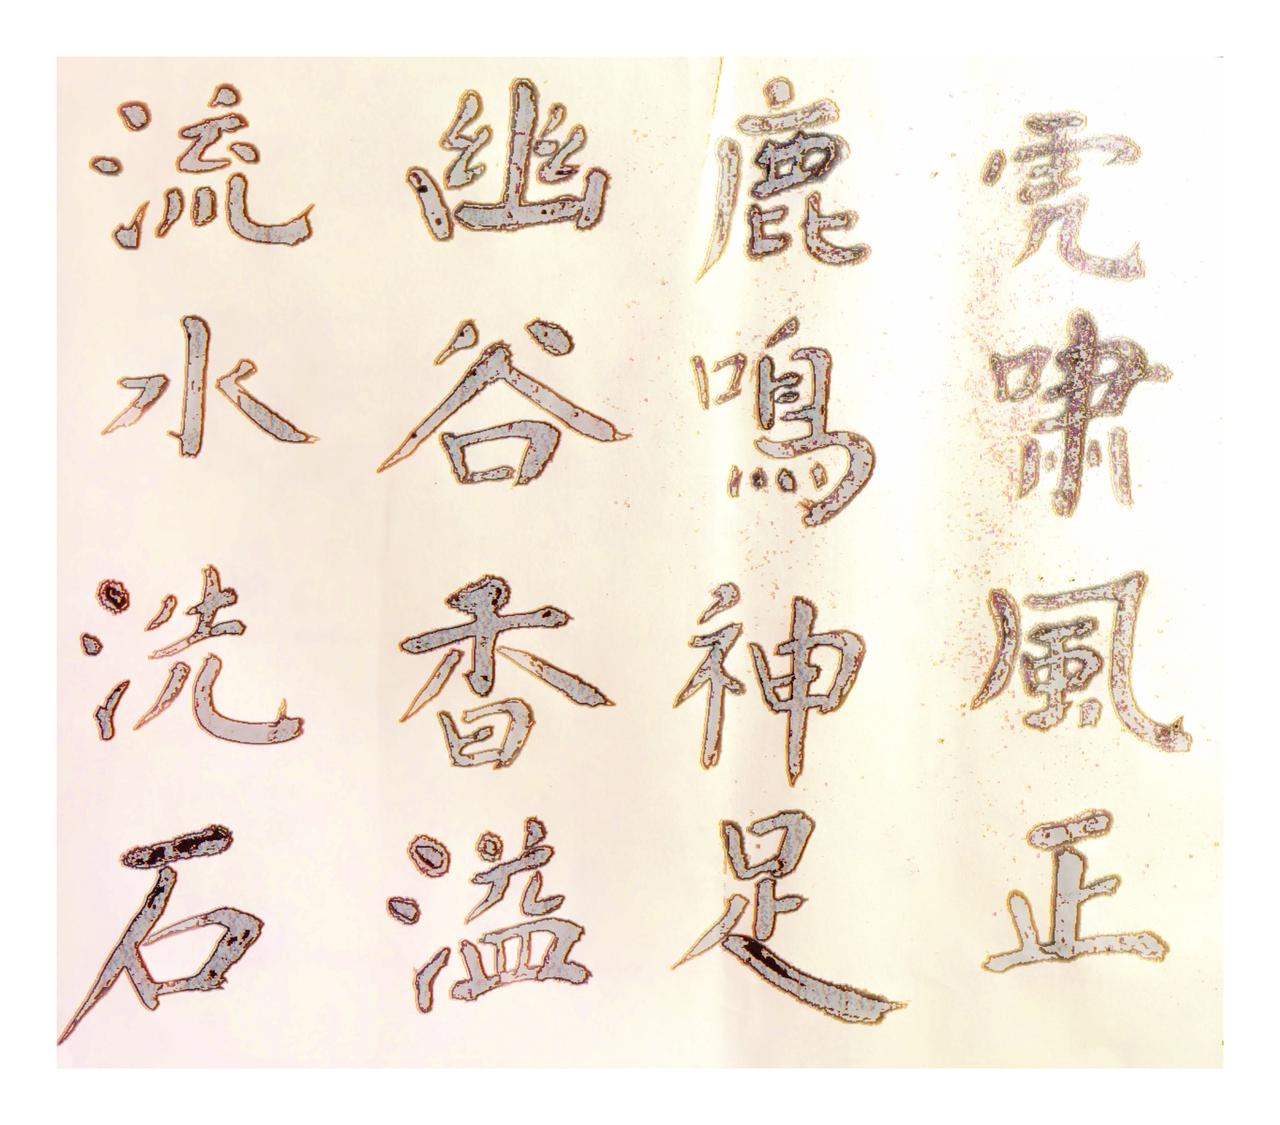 虎啸風正
鹿鳴神足
幽谷香溢
流水洗石